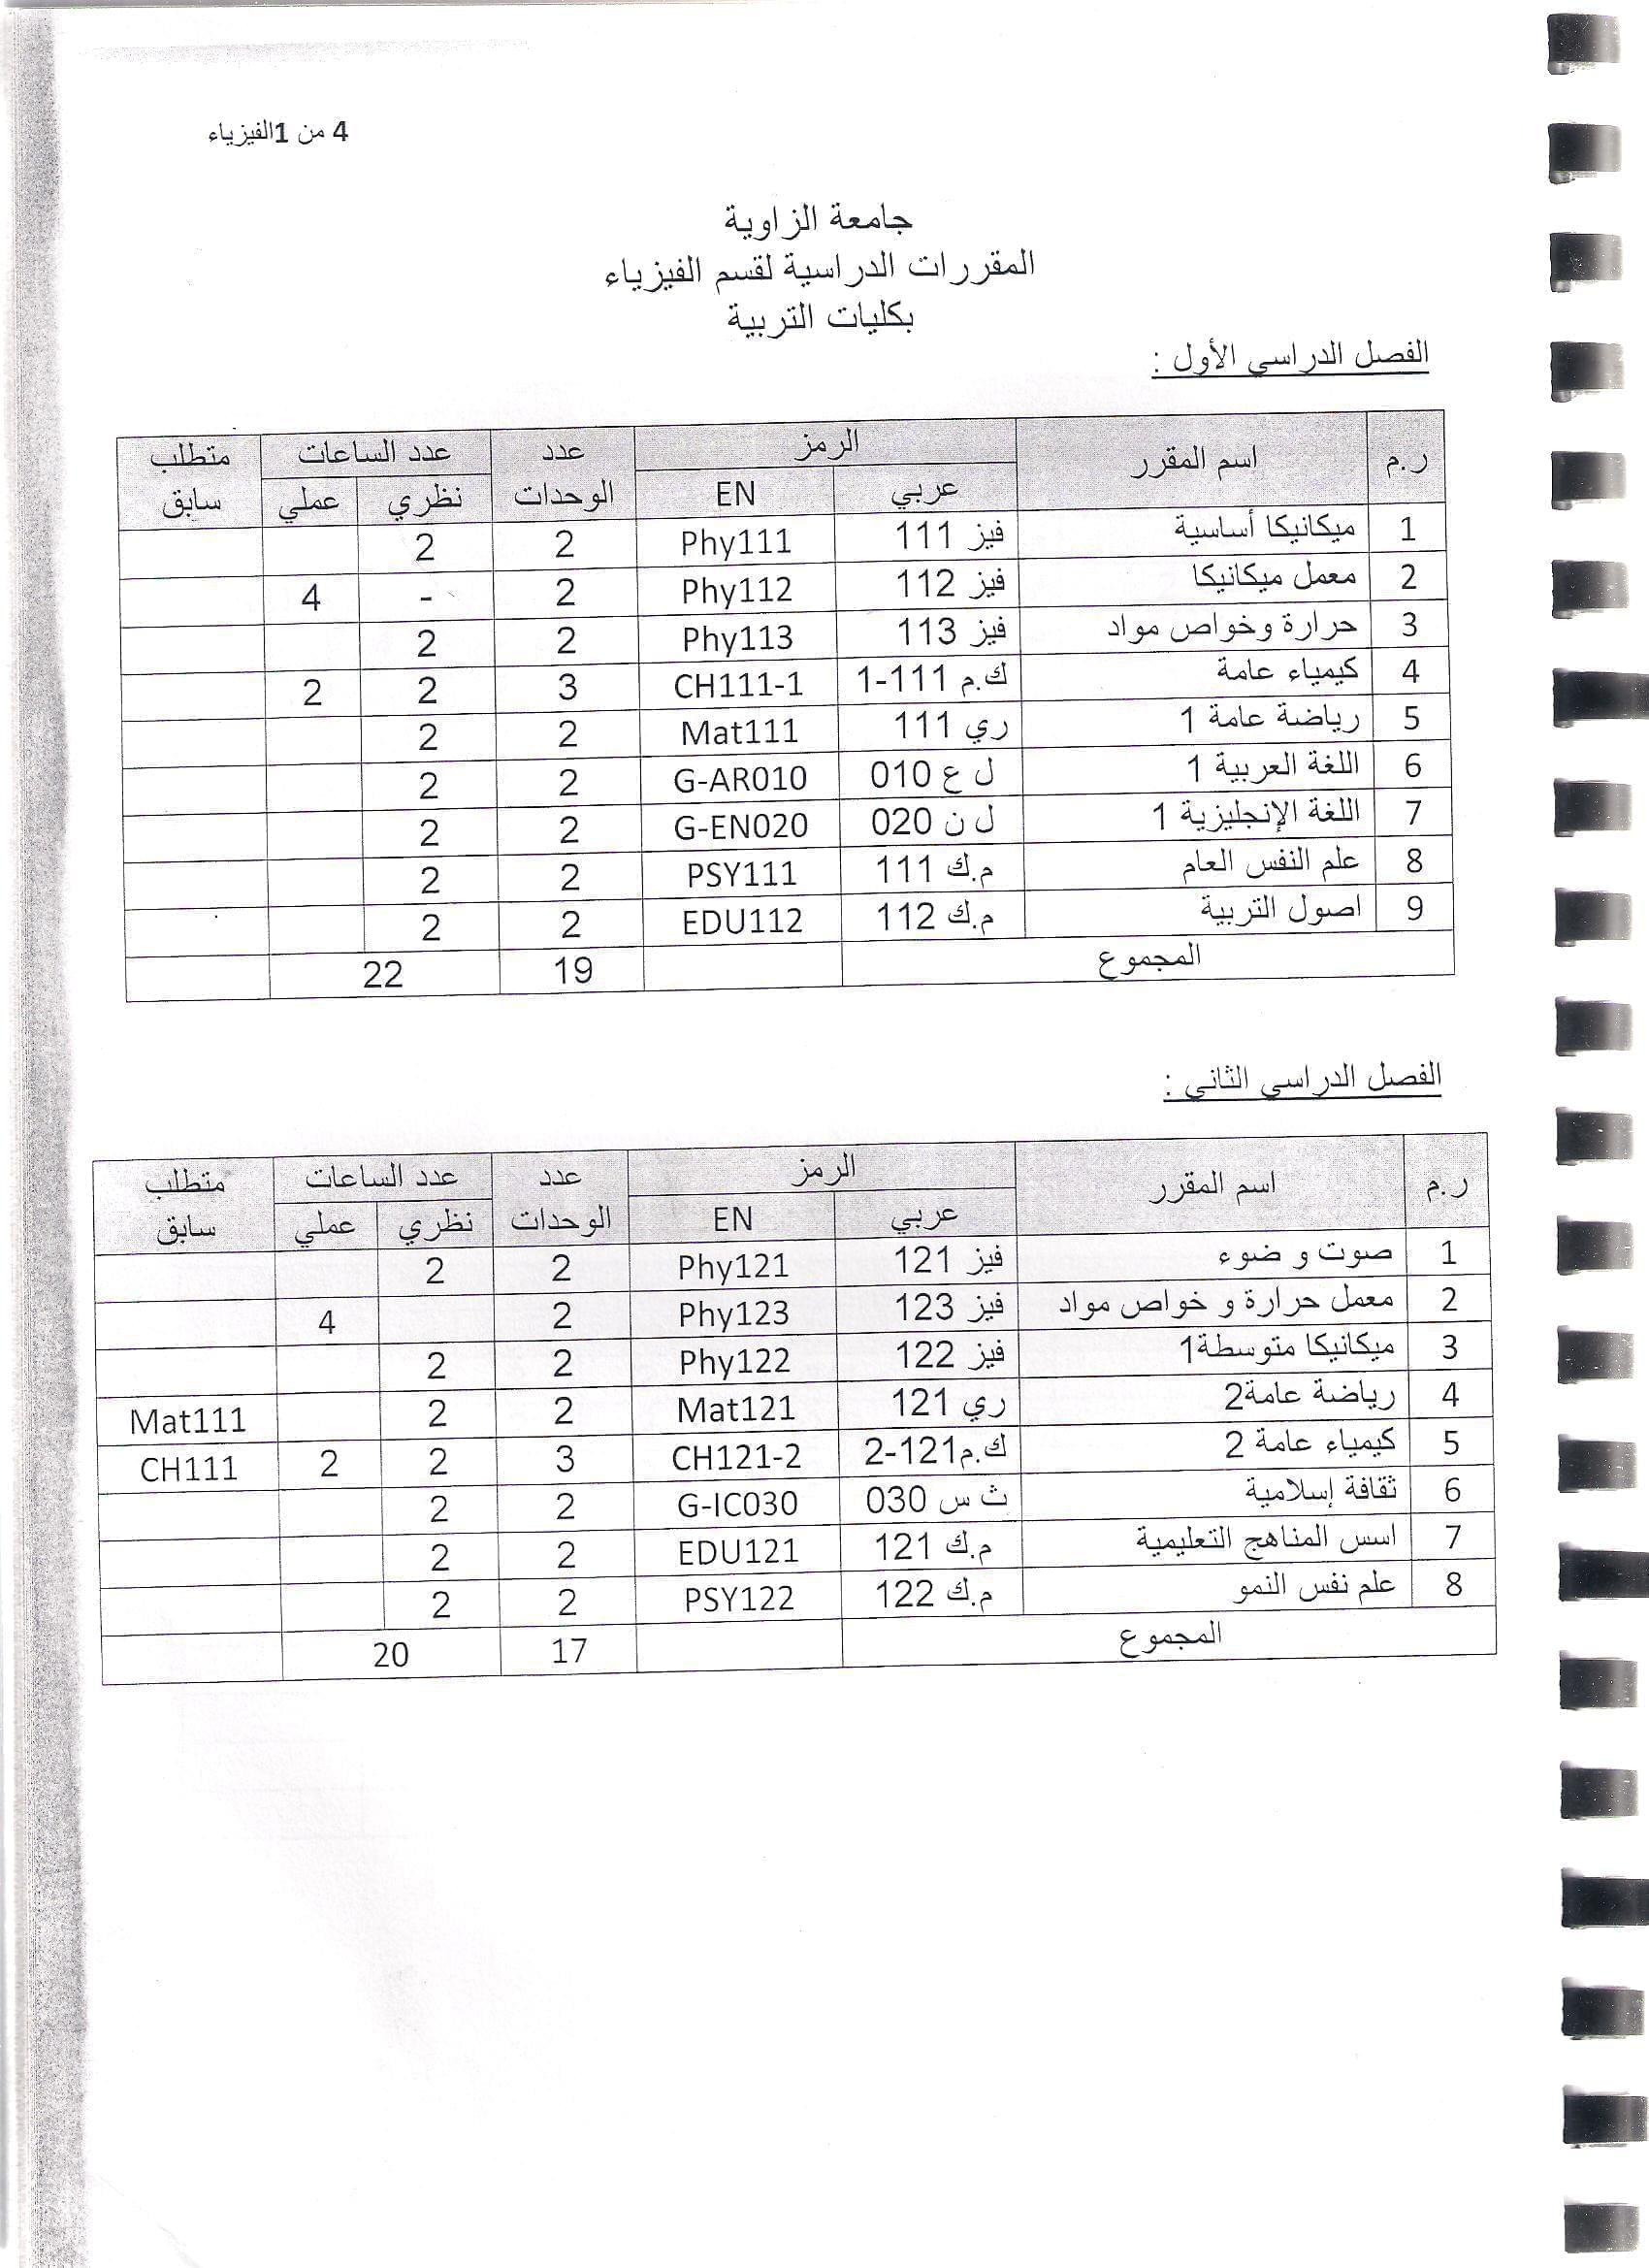 4 من 1الفيزياء
جامعة الزاوية
المقررات الدراسية لقسم الفيزياء
بكليات التربية
الفصل الدراسي الأول :
ر.م اسم المقرر الرمز عدد الوحدات عدد الساعات متطلب سابق
عربي EN نظري عملي
1 ميكانيكا أساسية فيز 111 Phy111 2 2
2 معمل ميكانيكا فيز 112 Phy112 2 - 4
3 حرارة وخواص مواد فيز 113 Phy113 2 2
4 كيمياء عامة ك.م 111-1 CH111-1 3 2 2
5 رياضة عامة 1 ري 111 Mat111 2 2
6 اللغة العربية 1 ل ع 010 G-AR010 2 2
7 اللغة الإنجليزية 1 ل ن 020 G-EN020 2 2
8 علم النفس العام م.ك 111 PSY111 2 2
9 اصول التربية م.ك 112 EDU112 2 2
المجموع 19 22
الفصل الدراسي الثاني :
ر.م اسم المقرر الرمز عدد الوحدات عدد الساعات متطلب سابق
عربي EN نظري عملي
1 صوت و ضوء فيز 121 Phy121 2 2
2 معمل حرارة و خواص مواد فيز 123 Phy123 2 4
3 ميكانيكا متوسطة1 فيز 122 Phy122 2 2
4 رياضة عامة2 ري 121 Mat121 2 2 Mat111
5 كيمياء عامة 2 ك.م121-2 CH121-2 3 2 2 CH111
6 ثقافة إسلامية ث س 030 G-IC030 2 2
7 اسس المناهج التعليمية م.ك 121 EDU121 2 2
8 علم نفس النمو م.ك 122 PSY122 2 2
المجموع 17 20